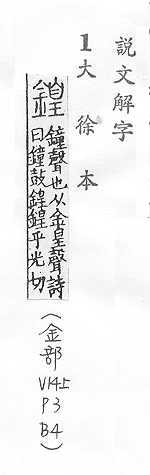 説文解字
1大徐本
鍠 鐘聲也从金皇聲詩
曰鐘鼓鍠鍠乎光切
(金部
V14上
P3
B4)